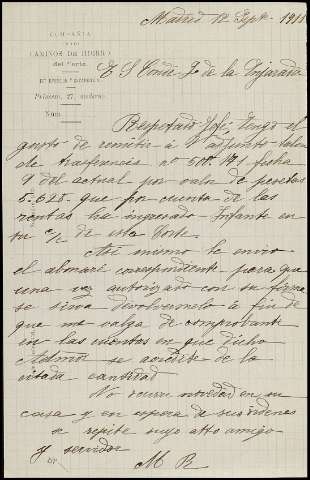 Madrid 12 Sept. 1911
COMPAÑIA
DE LOS
CAMINOS DE HIERRO
del Norte
E. S. Conde de la
Pelayo, 27,
Núm.
Respetado Jefe: tengo el
gusto de remitir á V. adjunto talon
de trasferencia nº 501.171 fecha
9 del actual por valor de pesetas
5.625 - que por cuenta de las
rentas ha ingresado Infante en
su c/c de esta Corte.
Asi mismo le envio
el abonaré correspondiente para que
una vez autorizado con su firma
se sirva devolvermelo á fin de
que me valga de comprobante
en las cuentas en que dicho
Admor se acredite de la
citada cantidad
No ocurre novedad en su
casa y en espera de sus ordenes
se repite suyo atto amigo
y servidor
M R